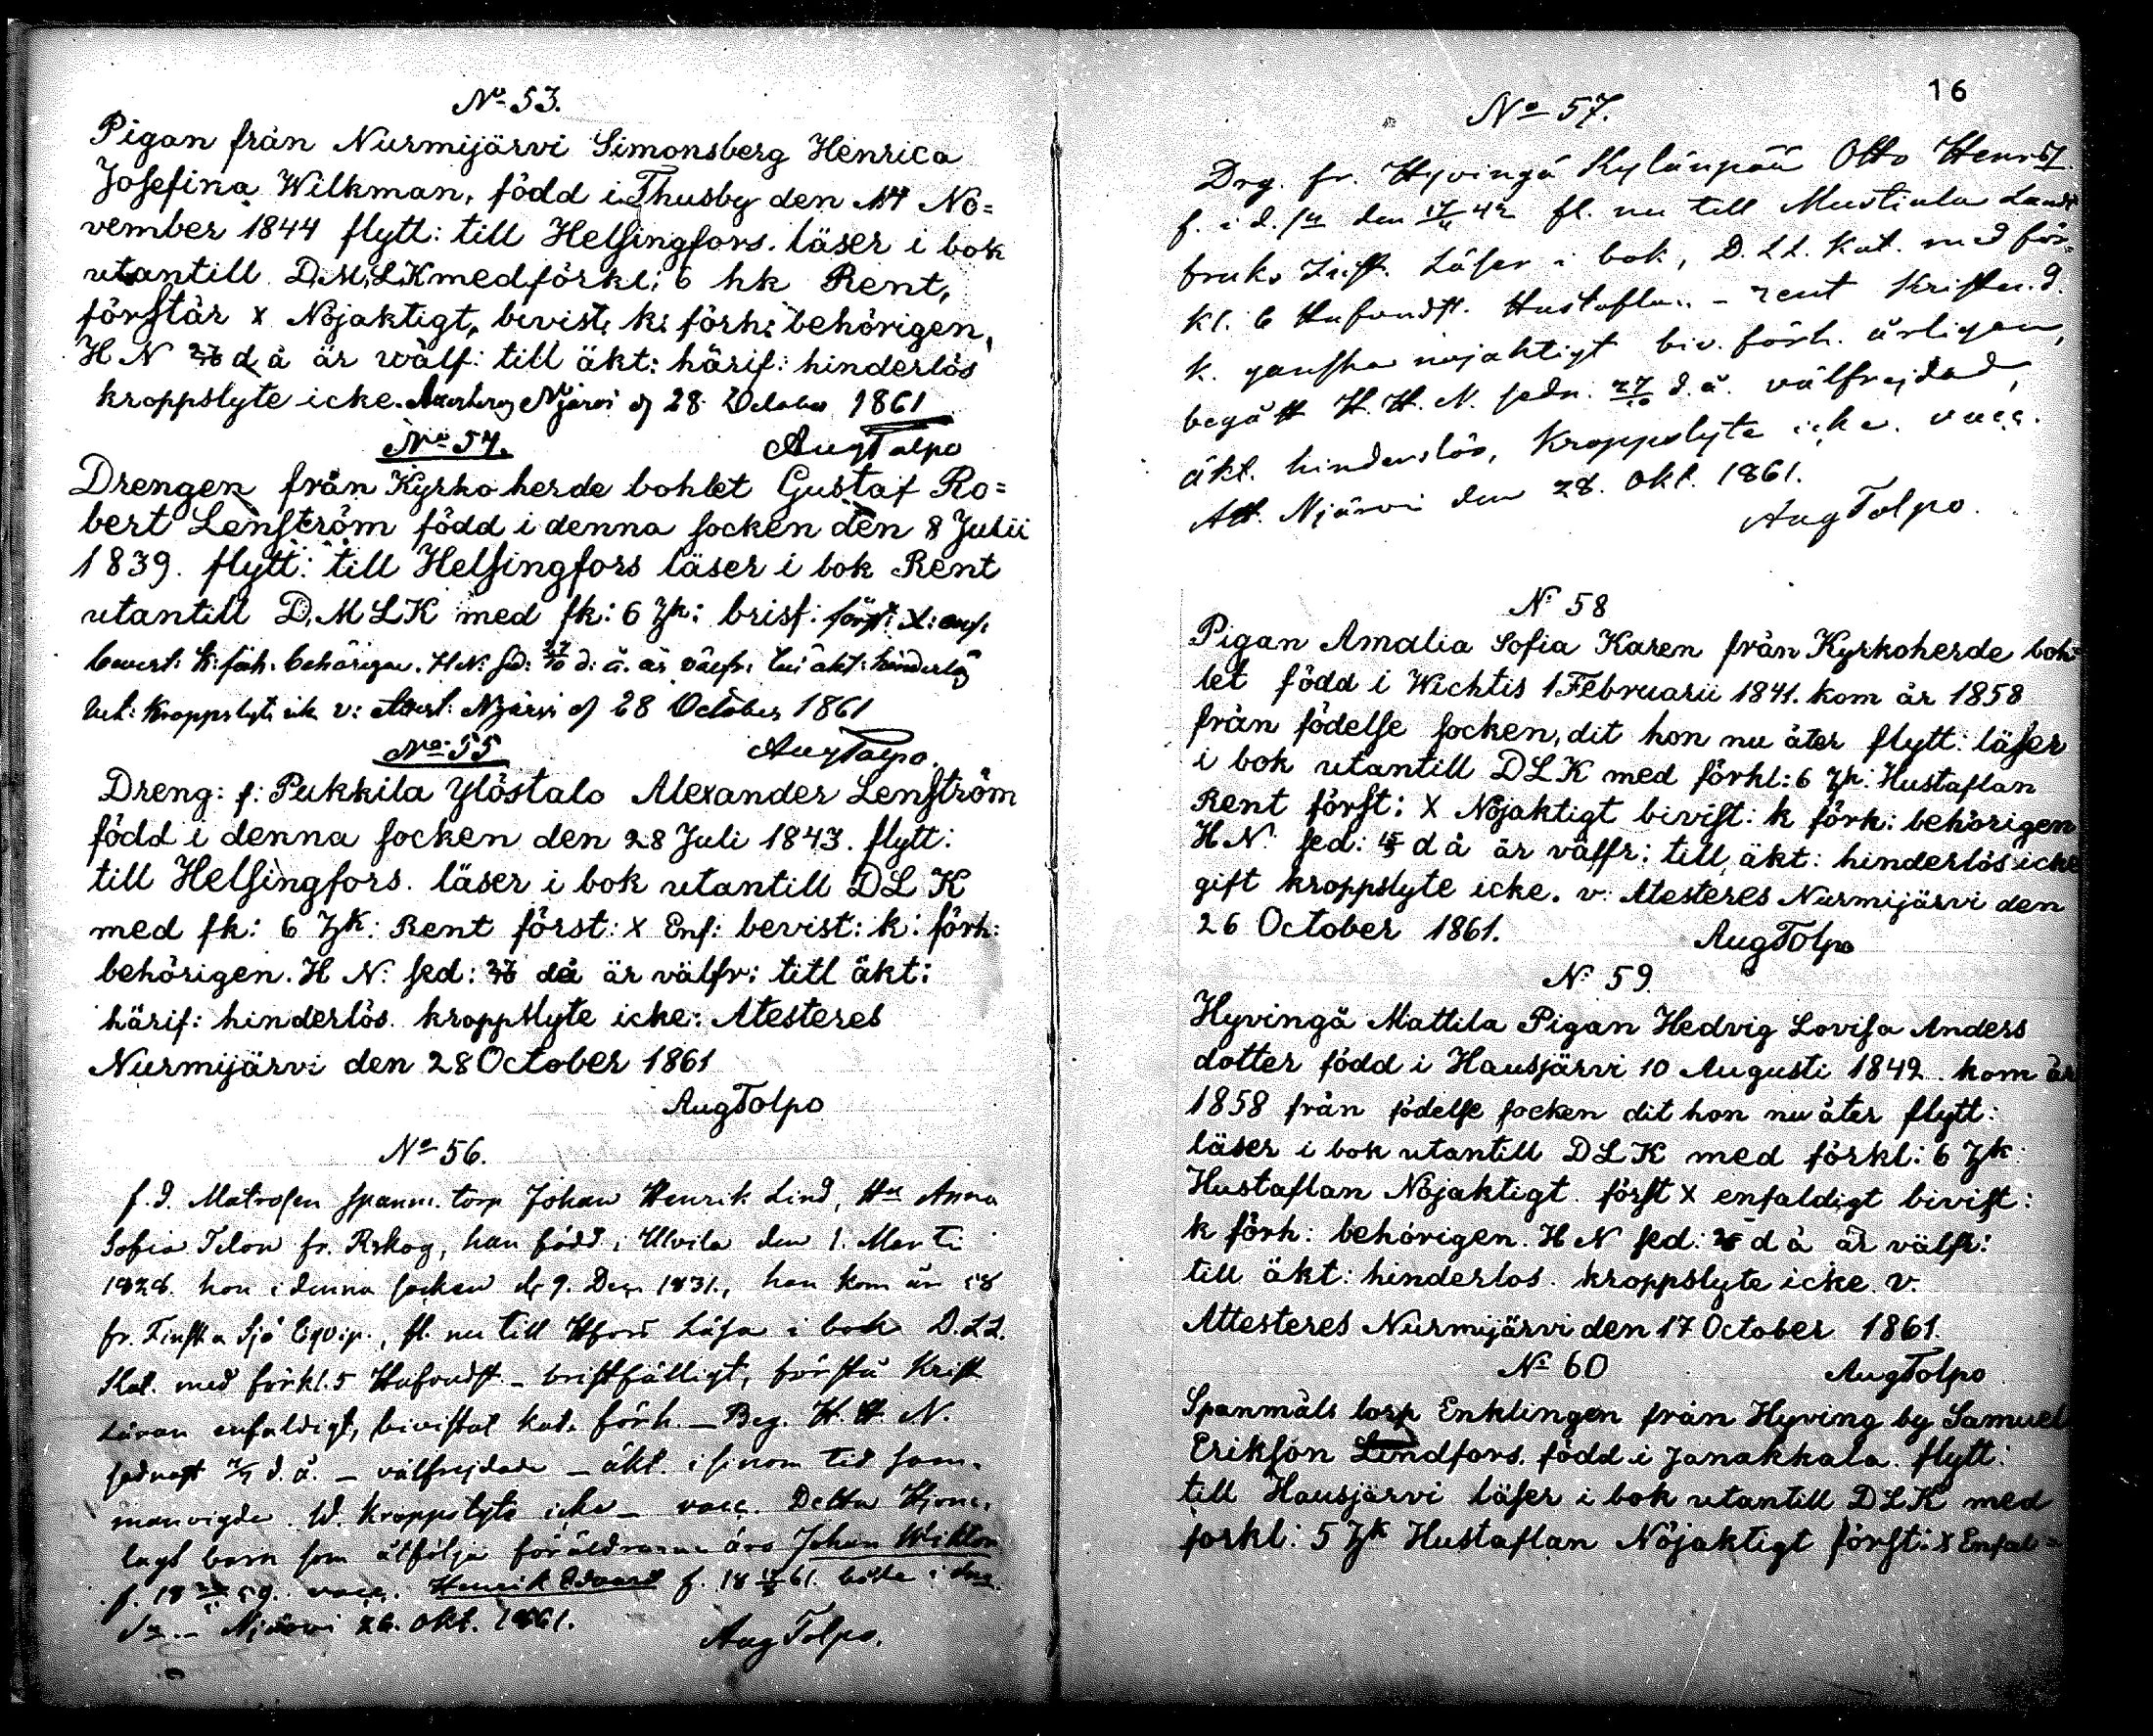 No 53.
Pigan från Nurmijärvi Simonsberg Henrica
Josefina Wilkman, född i Thusby den 14 No=
vember 1844 flytt: till Helsingfors. läser i bok
utantill D.M.L.K med förkl: 6 hk Rent,
förstår x Nöjaktigt, bevist. k: förh: behörigen,
H N d å är wälf: till äkt: härif: hinderlös
kroppslyte icke. Njärvi d 28 October 1861
Aug Tolpo
No 54.
Drengen från Kyrkoherde bohlet Gustaf Ro=
bert Lenström född i denna socken den 8 Julii
1839. flytt: till Helsingfors läser i bok Rent
utantill D.M L K med fk: 6 hk: brisf: först: x: enf:
bevist: k: förh: behörigen. H N: sed: 27/10 d: å. är välfr: till äkt: hinderlös
kroppslyte ick v: Attest: Njärvi d 28 October 1861
Aug Tolpo.
No 55
Dreng: f: Pukkila Ylöstalo Alexander Lenström
född i denna socken den 28 Juli 1843. flytt:
till Helsingfors. läser i bok utantill D L K
med fk: 6 hk: Rent först: x Enf: bevist: k: förh:
behörigen. H N: sed: då är välfr: titl äkt:
härif: hinderlös. kroppslyte icke: Atesteres
Nurmijärvi den 28 October 1861
Aug Tolpo
No 56.
f.d. Matrosen Spanm. torp Johan Henrik Lind, Hu Anna
Sofia Telon fr. Rskog, han född i Ulvila den 1. Marti
1828. hon i denna socken d 9. Dec. 1831., han kom år 58
fr. Finska Sjö Eqvip., fl. nu till Hfors Läsa i bok D.L.L.
Kat. med förkl. 5 Hufvudst. – bristfälligt, förstå Krist
Läran enfaldigt, bivistat kat. förh. – Beg. H. H. N.
sednast d. å. – välfrejdade – äkt. i sinom tid sam-
manvigde. Kroppslyte icke – vacc. Detta Hjone-
lags barn som åtfölja föräldrarna äro Johan Wiktor
f. 18 59. vacc. Henrik Edvard f. 18 61. både i
Njärvi 26. Okt. 1861.
Aug Tolpo.
16
No 57.
Drg. fr. Hyvingä Kylänpää Otto Henrs
f. i d. sn den 42 fl. nu till Mustiala Landt
bruks Inst. Läser i bok, D. L.L. Kat. med för=
kl. 6 Hufvudst. Hustaflan – rent Kristend.
k. ganska nöjaktigt biv. förh. årligen,
begått H. H. N. sedn. 27/10 d. å. välfrejdad,
äkt. hinderslös, Kroppslyte icke. vacc.
Att. Njärvi den 28. Okt. 1861.
Aug Tolpo.
No 58
Pigan Amalia Sofia Karen från Kyrkoherde boh=
let född i Wichtis 1 Februarii 1841. kom år 1858
från födelse socken, dit hon nu åter flytt: läser
i bok utantill D L K med förkl: 6 hk: Hustaflan
Rent först: x Nöjaktigt bivist: k förh: behörigen
H N: sed: d å är välfr: till äkt: hinderlös icke
gift kroppslyte icke. v: Atesteres Nurmijärvi den
26 October 1861.
Aug Tolpo
No 59.
Hyvingä Mattila Pigan Hedvig Lovisa Anders
dotter född i Hausjärvi 10 Augusti 1842. kom år
1858 från födelse socken dit hon nu åter flytt:
läser i bok utantill D L K med förkl: 6 hk:
Hustaflan Nöjaktigt. först x enfaldigt bivist:
k förh: behörigen. H N sed: d å är välfr:
till äkt: hinderlos. kroppslyte icke. v.
Attesteres Nurmijärvi den 17 October 1861.
Aug Tolpo
No 60
Spanmåls torp Enklingen från Hyving by Samuel
Erikson Lindfors. född i Janakkala. flytt:
till Hausjärvi läser i bok utantill D L K med
forkl: 5 hk Hustaflan Nöjaktigt först: x Enfal=